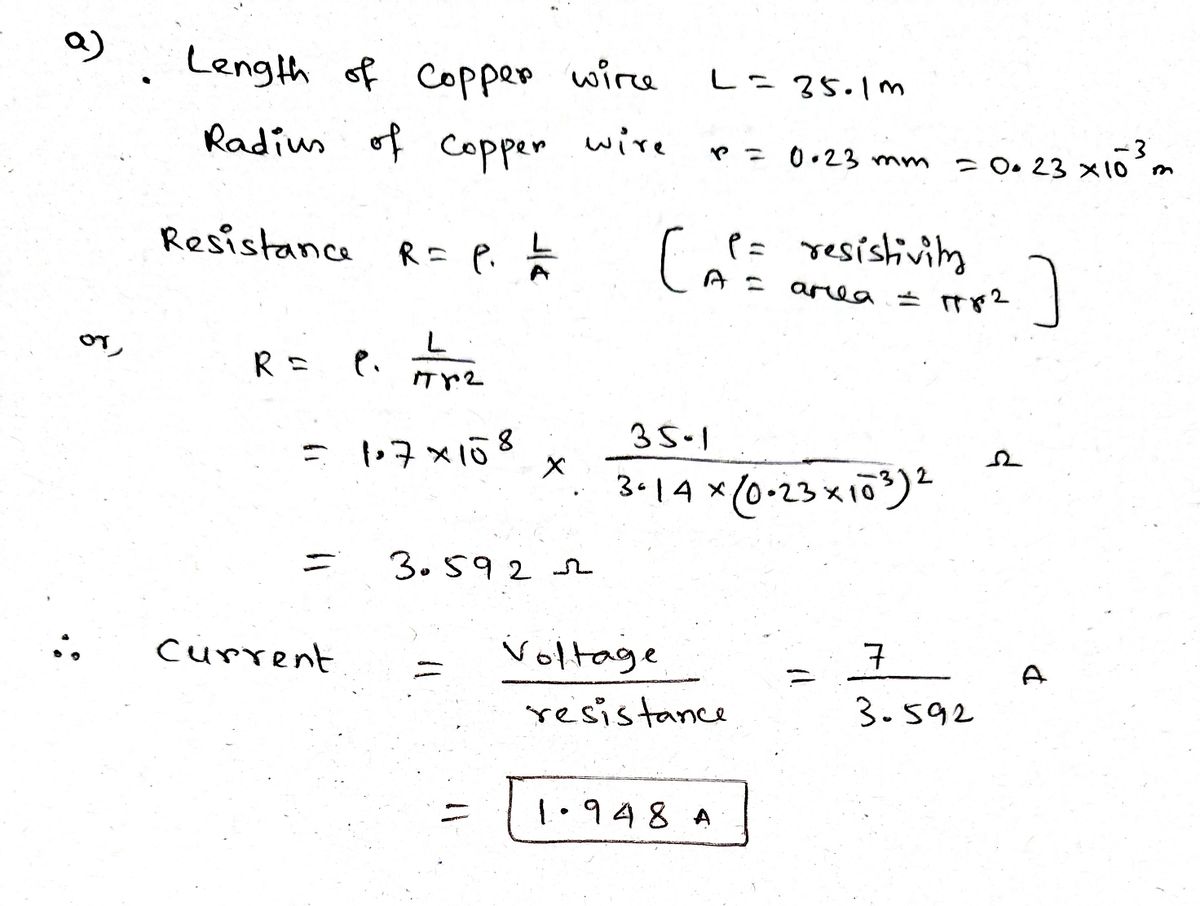 a) . Length of Copper wire L = 35.1m
Radius of Copper wire r = 0.23 mm = 0.23 ×10⁻³ m
Resistance R = ρ. L/A [ρ = resistivity
A = area = πr²]
or, R = ρ. L/πr²
= 1.7 ×10⁻⁸ × 35.1/3.14 × (0.23 ×10⁻³)² Ω
= 3.592 Ω
∴ Current = Voltage/resistance = 7/3.592 A
= 1.948 A